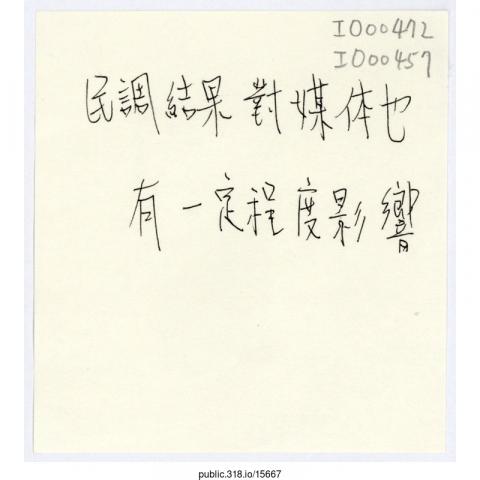 IO00472
IO00457
民調結果對媒体也
有一定程度影響
public.318.io/15667